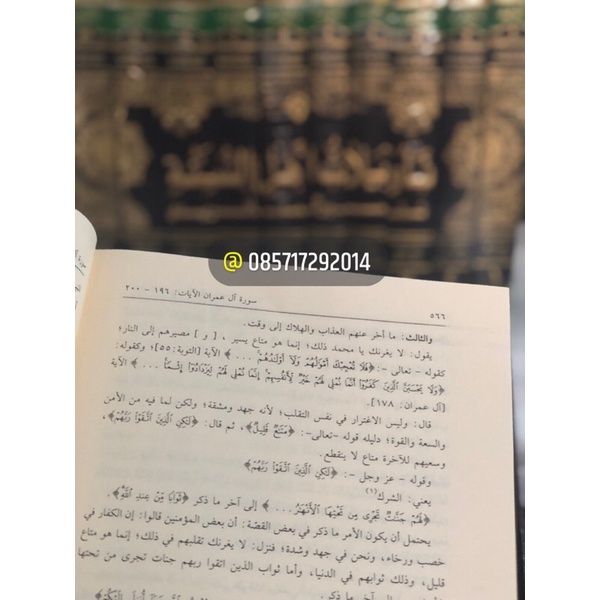 @ 085717292014
٥٦٦
سورة آل عمران الآيات: ١٩٦ - ٢٠٠
والثالث: ما أخر عنهم العذاب والهلاك إلى وقت.
يقول: لا يغرنك يا محمد ذلك؛ إنما هو متاع يسير ، [ و ] مصيرهم إلى النار؛
كقوله - تعالى -: ﴿فَلَا تُعْجِبْكَ أَمْوَٰلُهُمْ وَلَآ أَوْلَٰدُهُمْ ...﴾ الآية [التوبة:٥٥]؛ وكقوله:
﴿وَلَا يَحْسَبَنَّ ٱلَّذِينَ كَفَرُوٓا۟ أَنَّمَا نُمْلِى لَهُمْ خَيْرٌ لِّأَنفُسِهِمْ إِنَّمَا نُمْلِى لَهُمْ لِيَزْدَادُوٓا۟ إِثْمًا ...﴾ الآية
[آل عمران: ١٧٨].
قال: وليس الاغترار في نفس التقلب؛ لأنه جهد ومشقة؛ ولكن لما فيه من الأمن
والسعة والقوة؛ دليله قوله -تعالى-: ﴿مَتَٰعٌ قَلِيلٌ﴾، ثم قال: ﴿لَٰكِنِ ٱلَّذِينَ ٱتَّقَوْا۟ رَبَّهُمْ﴾،
وسعيهم للآخرة متاع لا ينقطع.
وقوله - عز وجل -: ﴿لَٰكِنِ ٱلَّذِينَ ٱتَّقَوْا۟ رَبَّهُمْ﴾
يعني: الشرك(١)
﴿لَهُمْ جَنَّٰتٌ تَجْرِى مِن تَحْتِهَا ٱلْأَنْهَٰرُ ...﴾ إلى آخر ما ذكر ﴿ثَوَابًا مِّنْ عِندِ ٱللَّهِ﴾.
يحتمل أن يكون الأمر ما ذكر في بعض القصة: أن بعض المؤمنين قالوا: إن الكفار في
خصب ورخاء، ونحن في جهد وشدة؛ فنزل: لا يغرنك تقلبهم في ذلك؛ إنما هو متاع
قليل، وذلك ثوابهم في الدنيا، وأما ثواب الذين اتقوا ربهم جنات تجرى من تحتها
إلى آخر ما ذكر.